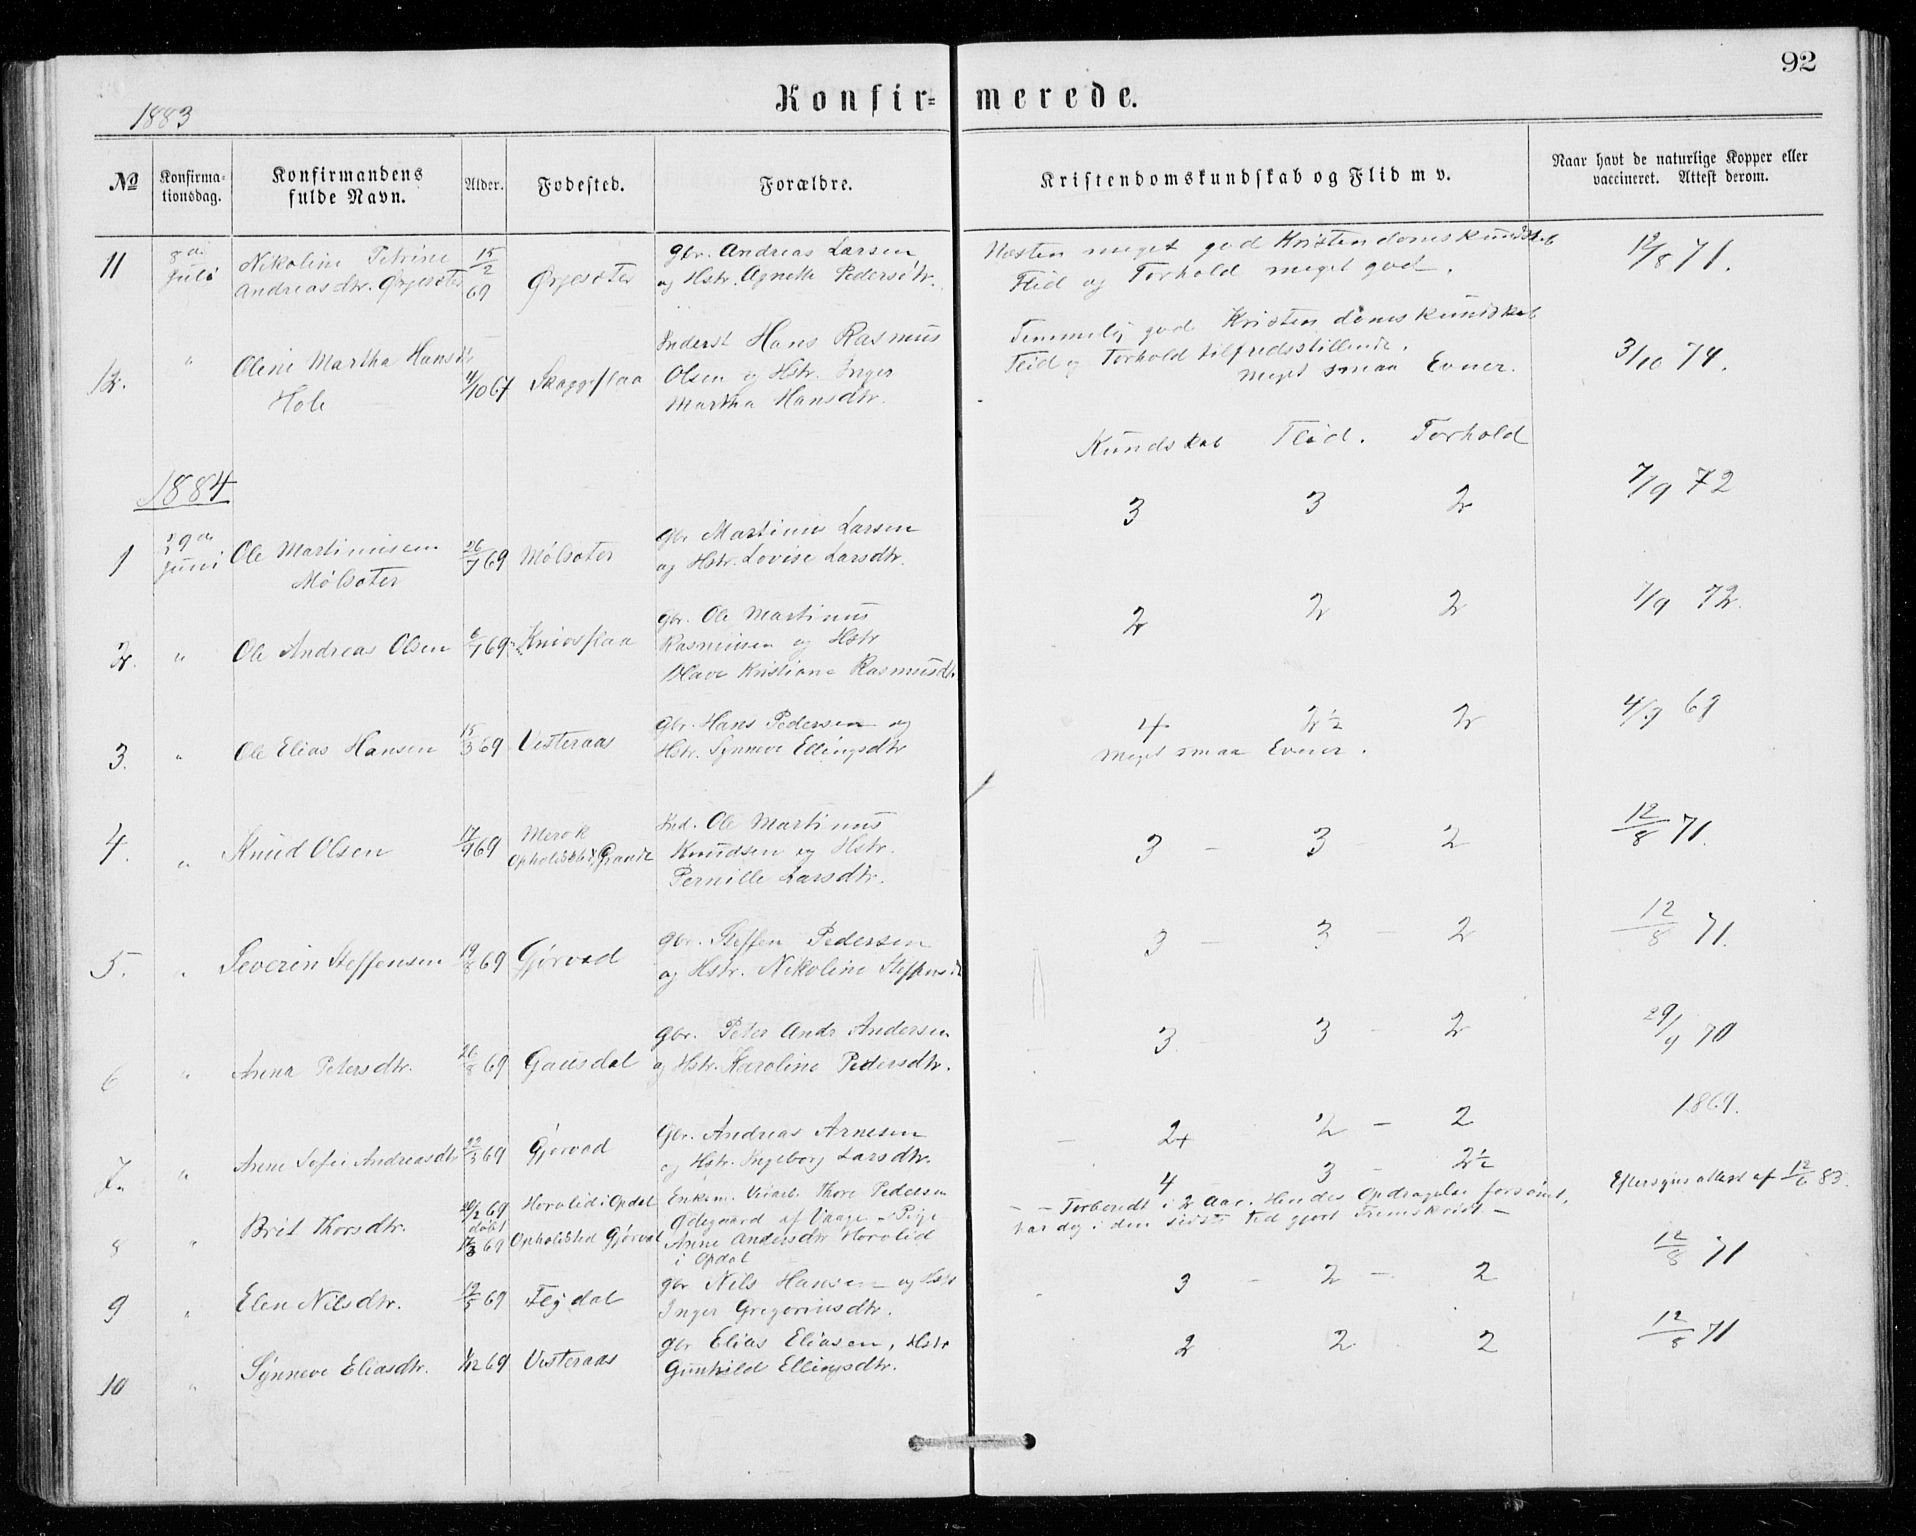 92
Konfir= merede.
1883
No
Konfirma-
tionsdag.
Konfirmandens
fulde Navn.
Alder.
Fødested.
Forældre.
Kristendomskundskab og Flid m v.
Naar havt de naturlige Kopper eller
vaccineret. Attest derom.
11 8de Juli
Nikoline Petrine
Andreasdtr. Ørjesæter
15/2 69
Ørjesæter
Gbr. Andreas Larsen
og Hstr. Agnethe Pedersdtr.
Næsten meget god Kristendomskundskab
Flid og Forhold meget god.
12/8 71.
12. "
Oline Martha Hansdtr
Hole
4/10 67
Skaggeflaa
Inderst Hans Rasmus
Olsen og Hstr. Inger
Martha Hansdtr.
Temmelig god Kristendomskundskab
Flid og Forhold tilfredsstillende.
Meget smaa Evner.
3/10 74.
Kundskab Flid. Forhold
1884
1 29de Juni
Ole Martinusen
Mølsæter
26/7 69
Mølsæter
Gbr Martinus Larsen
og Hstr. Lovise Larsdtr.
3 3 2
7/9 72
2. "
Ole Andreas Olsen
6/1 69
Knivsflaa
Gbr. Ole Martinus
Rasmusen og Hstr
Olave Kristiane Rasmusdtr.
2 2 2
7/9 72.
3. "
Ole Elias Hansen
15/3 69
Vesteraas
Gbr. Hans Pedersen og
Hstr. Synneve Ellingsdtr
4 2½ 2
Meget smaa Evner.
4/9 69
4. "
Knud Olsen
17/9 69
Merok
Opholdsted, Grande
Ind. Ole Martinus
Knudsen og Hstr.
Pernille Larsdtr.
3 - 3 - 2
12/8 71.
5. "
Severin Steffensen
19/8 69
Gjørvad
Gbr. Steffen Pedersen
og Hstr. Nikoline Steffensdtr
3 - 3 - 2
12/8 71.
6 "
Anna Petersdtr.
26/8 69
Gausdal
Gbr. Peter Andr Andersen
og Hstr. Karoline Pedersdtr.
3 - 3 - 2
29/9 70
7. "
Anne Sofie Andreasdtr
22/3 69
Gjørvad
Gbr. Andreas Arnesen
og Hstr. Ingeborg Larsdtr.
- 2+ ½ - 2
1869.
8 "
Brit Thorsdtr.
69
døbt
69
Horvlid i Opdal
Opholdsted Gjørvad
Enkem. Thore Pedersen
Ødegaard af Vaage - Pige
Anne Andersdtr Horvlid
i Opdal
4 3 - 2½
- - Forberedt i 2 Aar. Hendes Opdragelse forsømt,
har dog i den sidste Tid gjort Fremskridt. -
Eftersynsattest af 12/6 83.
9 "
Elen Nilsdtr.
12/5 69
Flydal
Gbr Nils Hansen og Hstr
Inger Gregoriusdtr.
3 - 2 - 2
12/8 71
10 "
Synneve Eliasdtr.
1/12 69
Vesteraas
Gbr Elias Eliasen, Hstr
Gunhild Ellingsdtr.
2 2 2
12/8 71